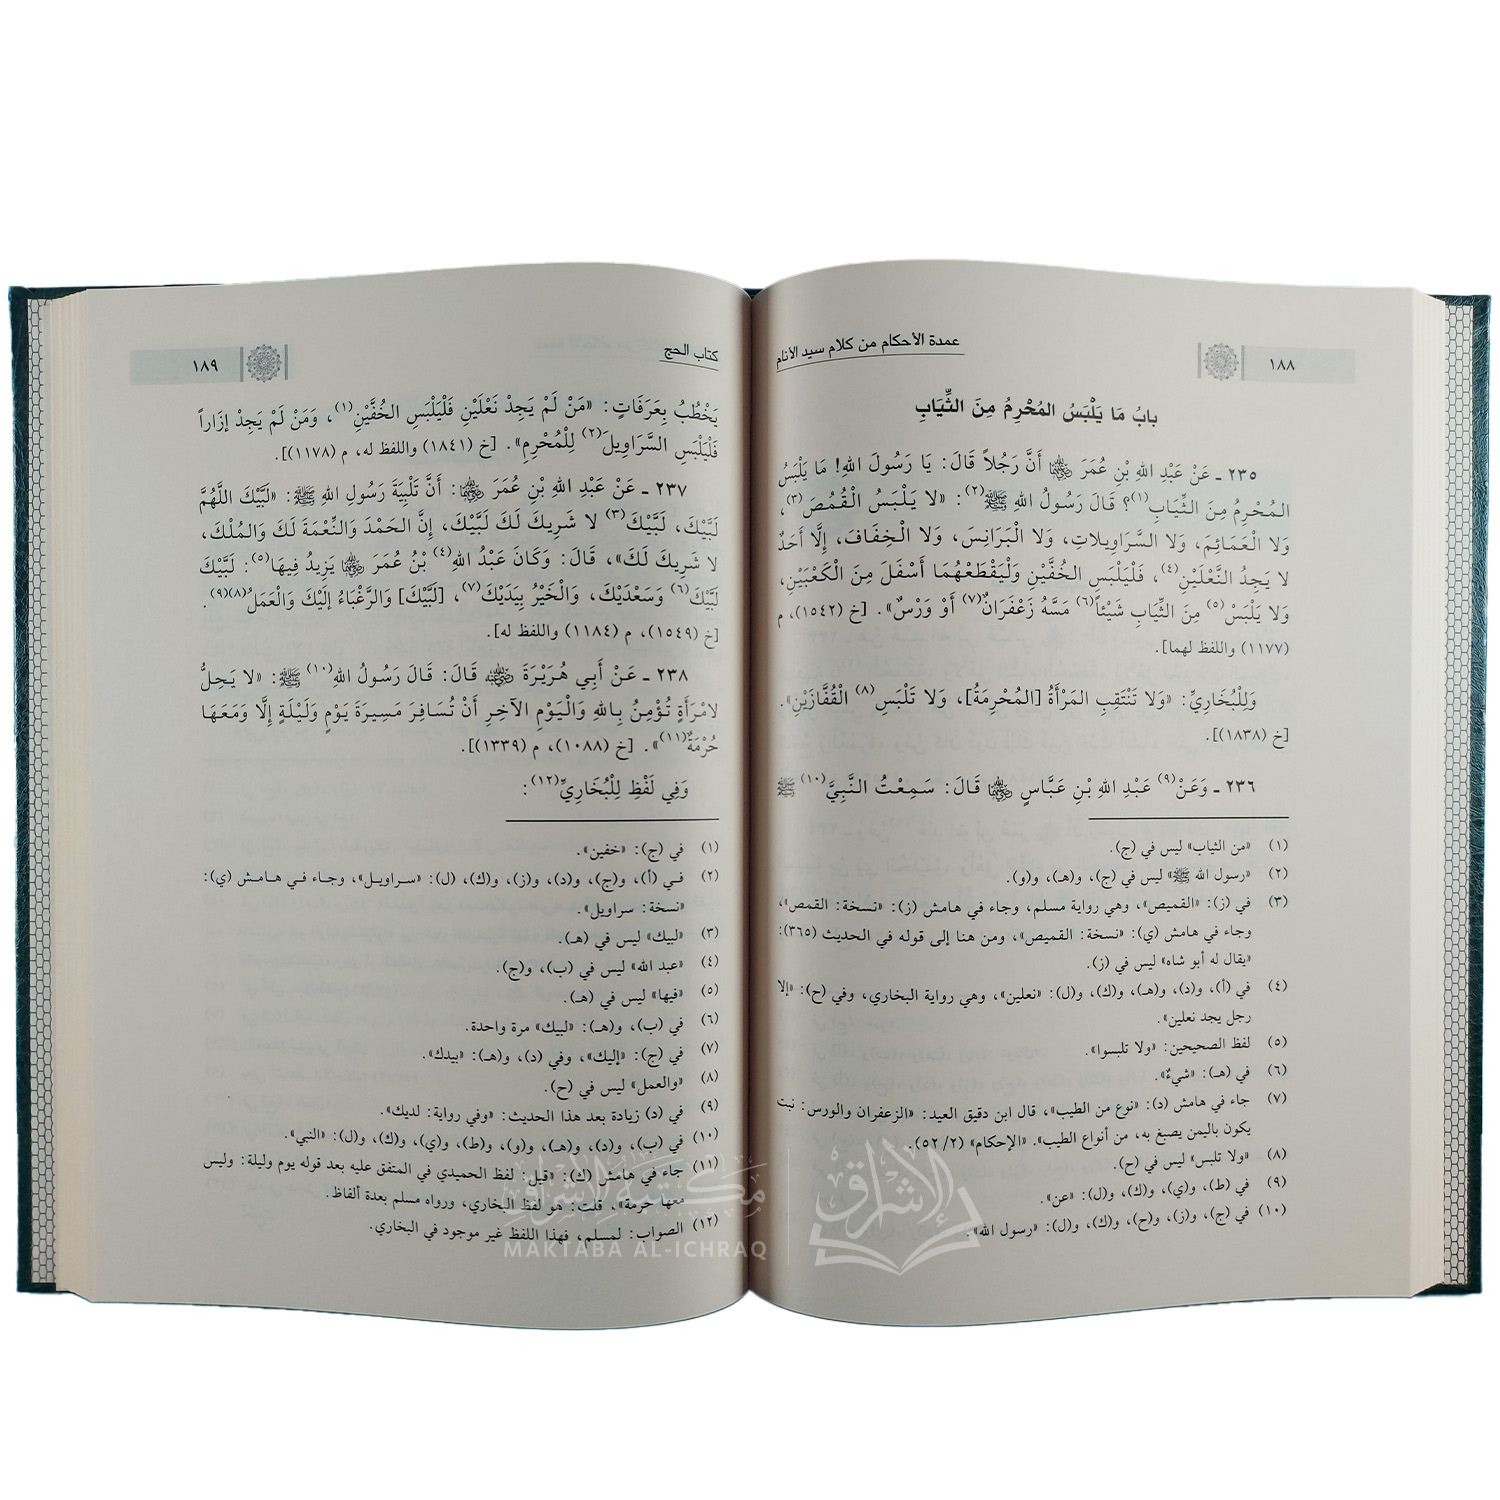 عمدة الأحكام من كلام سيد الأنام
١٨٨
بابُ مَا يَلْبَسُ المُحْرِمُ مِنَ الثِّيَابِ
٢٣٥ ـ عَنْ عَبْدِ اللهِ بْنِ عُمَرَ ﵄ أَنَّ رَجُلاً قَالَ: يَا رَسُولَ اللهِ! مَا يَلْبَسُ
المُحْرِمُ مِنَ الثِّيَابِ(١)؟ قَالَ رَسُولُ اللهِ ﷺ(٢): «لا يَلْبَسُ القُمُصَ(٣)،
وَلا الْعَمَائِمَ، وَلا السَّرَاوِيلاتِ، وَلا الْبَرَانِسَ، وَلا الْخِفَافَ، إِلَّا أَحَدٌ
لا يَجِدُ النَّعْلَيْنِ(٤)، فَلْيَلْبَسِ الخُفَّيْنِ وَلْيَقْطَعْهُمَا أَسْفَلَ مِنَ الْكَعْبَيْنِ،
وَلا يَلْبَسْ(٥) مِنَ الثِّيَابِ شَيْئاً(٦) مَسَّهُ زَعْفَرَانٌ(٧) أَوْ وَرْسٌ». [خ (١٥٤٢)، م
(١١٧٧) واللفظ لهما].
وَلِلْبُخَارِيِّ: «وَلا تَنْتَقِبِ المَرْأَةُ [المُحْرِمَةُ]، وَلا تَلْبَسِ(٨) الْقُفَّازَيْنِ».
[خ (١٨٣٨)].
٢٣٦ ـ وَعَنْ(٩) عَبْدِ اللهِ بْنِ عَبَّاسٍ ﵄ قَالَ: سَمِعْتُ النَّبِيَّ(١٠) ﷺ
(١) «من الثياب» ليس في (ج).
(٢) «رسول الله ﷺ» ليس في (ج)، و(هـ)، و(و).
(٣) في (ز): «القميص»، وهي رواية مسلم، وجاء في هامش (ز): «نسخة: القمص»،
وجاء في هامش (ي): «نسخة: القميص»، ومن هنا إلى قوله في الحديث (٣٦٥):
«يقال له أبو شاه» ليس في (ز).
(٤) في (أ)، و(د)، و(هـ)، و(ك)، و(ل): «نعلين»، وهي رواية البخاري، وفي (ح): «إلا
رجل يجد نعلين».
(٥) لفظ الصحيحين: «ولا تلبسوا».
(٦) في (هـ): «شيءٌ».
(٧) جاء في هامش (د): «نوع من الطيب»، قال ابن دقيق العيد: «الزعفران والورس: نبت
يكون باليمن يصبغ به، من أنواع الطيب». «الإحكام» (٢/ ٥٢).
(٨) «ولا تلبس» ليس في (ح).
(٩) في (ط)، و(ي)، و(ك)، و(ل): «عن».
(١٠) في (ج)، و(ز)، و(ح)، و(ك)، و(ل): «رسول الله».
كتاب الحج
١٨٩
يَخْطُبُ بِعَرَفَاتٍ: «مَنْ لَمْ يَجِدْ نَعْلَيْنِ فَلْيَلْبَسِ الخُفَّيْنِ(١)، وَمَنْ لَمْ يَجِدْ إزَاراً
فَلْيَلْبَسِ السَّرَاوِيلَ(٢) لِلْمُحْرِمِ». [خ (١٨٤١) واللفظ له، م (١١٧٨)].
٢٣٧ ـ عَنْ عَبْدِ اللهِ بْنِ عُمَرَ ﵄: أَنَّ تَلْبِيَةَ رَسُولِ اللهِ ﷺ: «لَبَّيْكَ اللَّهُمَّ
لَبَّيْكَ، لَبَّيْكَ(٣) لا شَرِيكَ لَكَ لَبَّيْكَ، إِنَّ الحَمْدَ وَالنِّعْمَةَ لَكَ وَالمُلْكَ،
لا شَرِيكَ لَكَ»، قَالَ: وَكَانَ عَبْدُ اللهِ(٤) بْنُ عُمَرَ ﵄ يَزِيدُ فِيهَا(٥): لَبَّيْكَ
لَبَّيْكَ(٦) وَسَعْدَيْكَ، وَالْخَيْرُ بِيَدَيْكَ(٧)، [لَبَّيْكَ] وَالرَّغْبَاءُ إِلَيْكَ وَالْعَمَلُ(٨)(٩).
[خ (١٥٤٩)، م (١١٨٤) واللفظ له].
٢٣٨ ـ عَنْ أَبِي هُرَيْرَةَ ﵁ قَالَ: قَالَ رَسُولُ اللهِ(١٠) ﷺ: «لا يَحِلُّ
لامْرَأَةٍ تُؤْمِنُ بِاللهِ وَالْيَوْمِ الآخِرِ أَنْ تُسَافِرَ مَسِيرَةَ يَوْمٍ وَلَيْلَةٍ إِلَّا وَمَعَهَا
حُرْمَةٌ(١١)». [خ (١٠٨٨)، م (١٣٣٩)].
وَفِي لَفْظِ لِلْبُخَارِيِّ(١٢):
(١) في (ج): «خفين».
(٢) في (أ)، و(ج)، و(د)، و(ز)، و(ك)، (ل): «سراويل»، وجاء في هامش (ي):
«نسخة: سراويل».
(٣) «لبيك» ليس في (هـ).
(٤) «عبد الله» ليس في (ب)، و(ج).
(٥) «فيها» ليس في (هـ).
(٦) في (ب)، و(هـ): «لبيك» مرة واحدة.
(٧) في (ج): «إليك»، وفي (د)، و(هـ): «بيدك».
(٨) «والعمل» ليس في (ح).
(٩) في (د) زيادة بعد هذا الحديث: «وفي رواية: لديك».
(١٠) في (ب)، و(د)، و(هـ)، و(و)، و(ط)، و(ي)، و(ك)، و(ل): «النبي».
(١١) جاء في هامش (ك): «قيل: لفظ الحميدي في المتفق عليه بعد قوله يوم وليلة: وليس
معها حرمة»، قلت: هو لفظ البخاري، ورواه مسلم بعدة ألفاظ.
(١٢) الصواب: لمسلم، فهذا اللفظ غير موجود في البخاري.
مكتبة الإشراق
MAKTABA AL-ICHRAQ
الإشراق